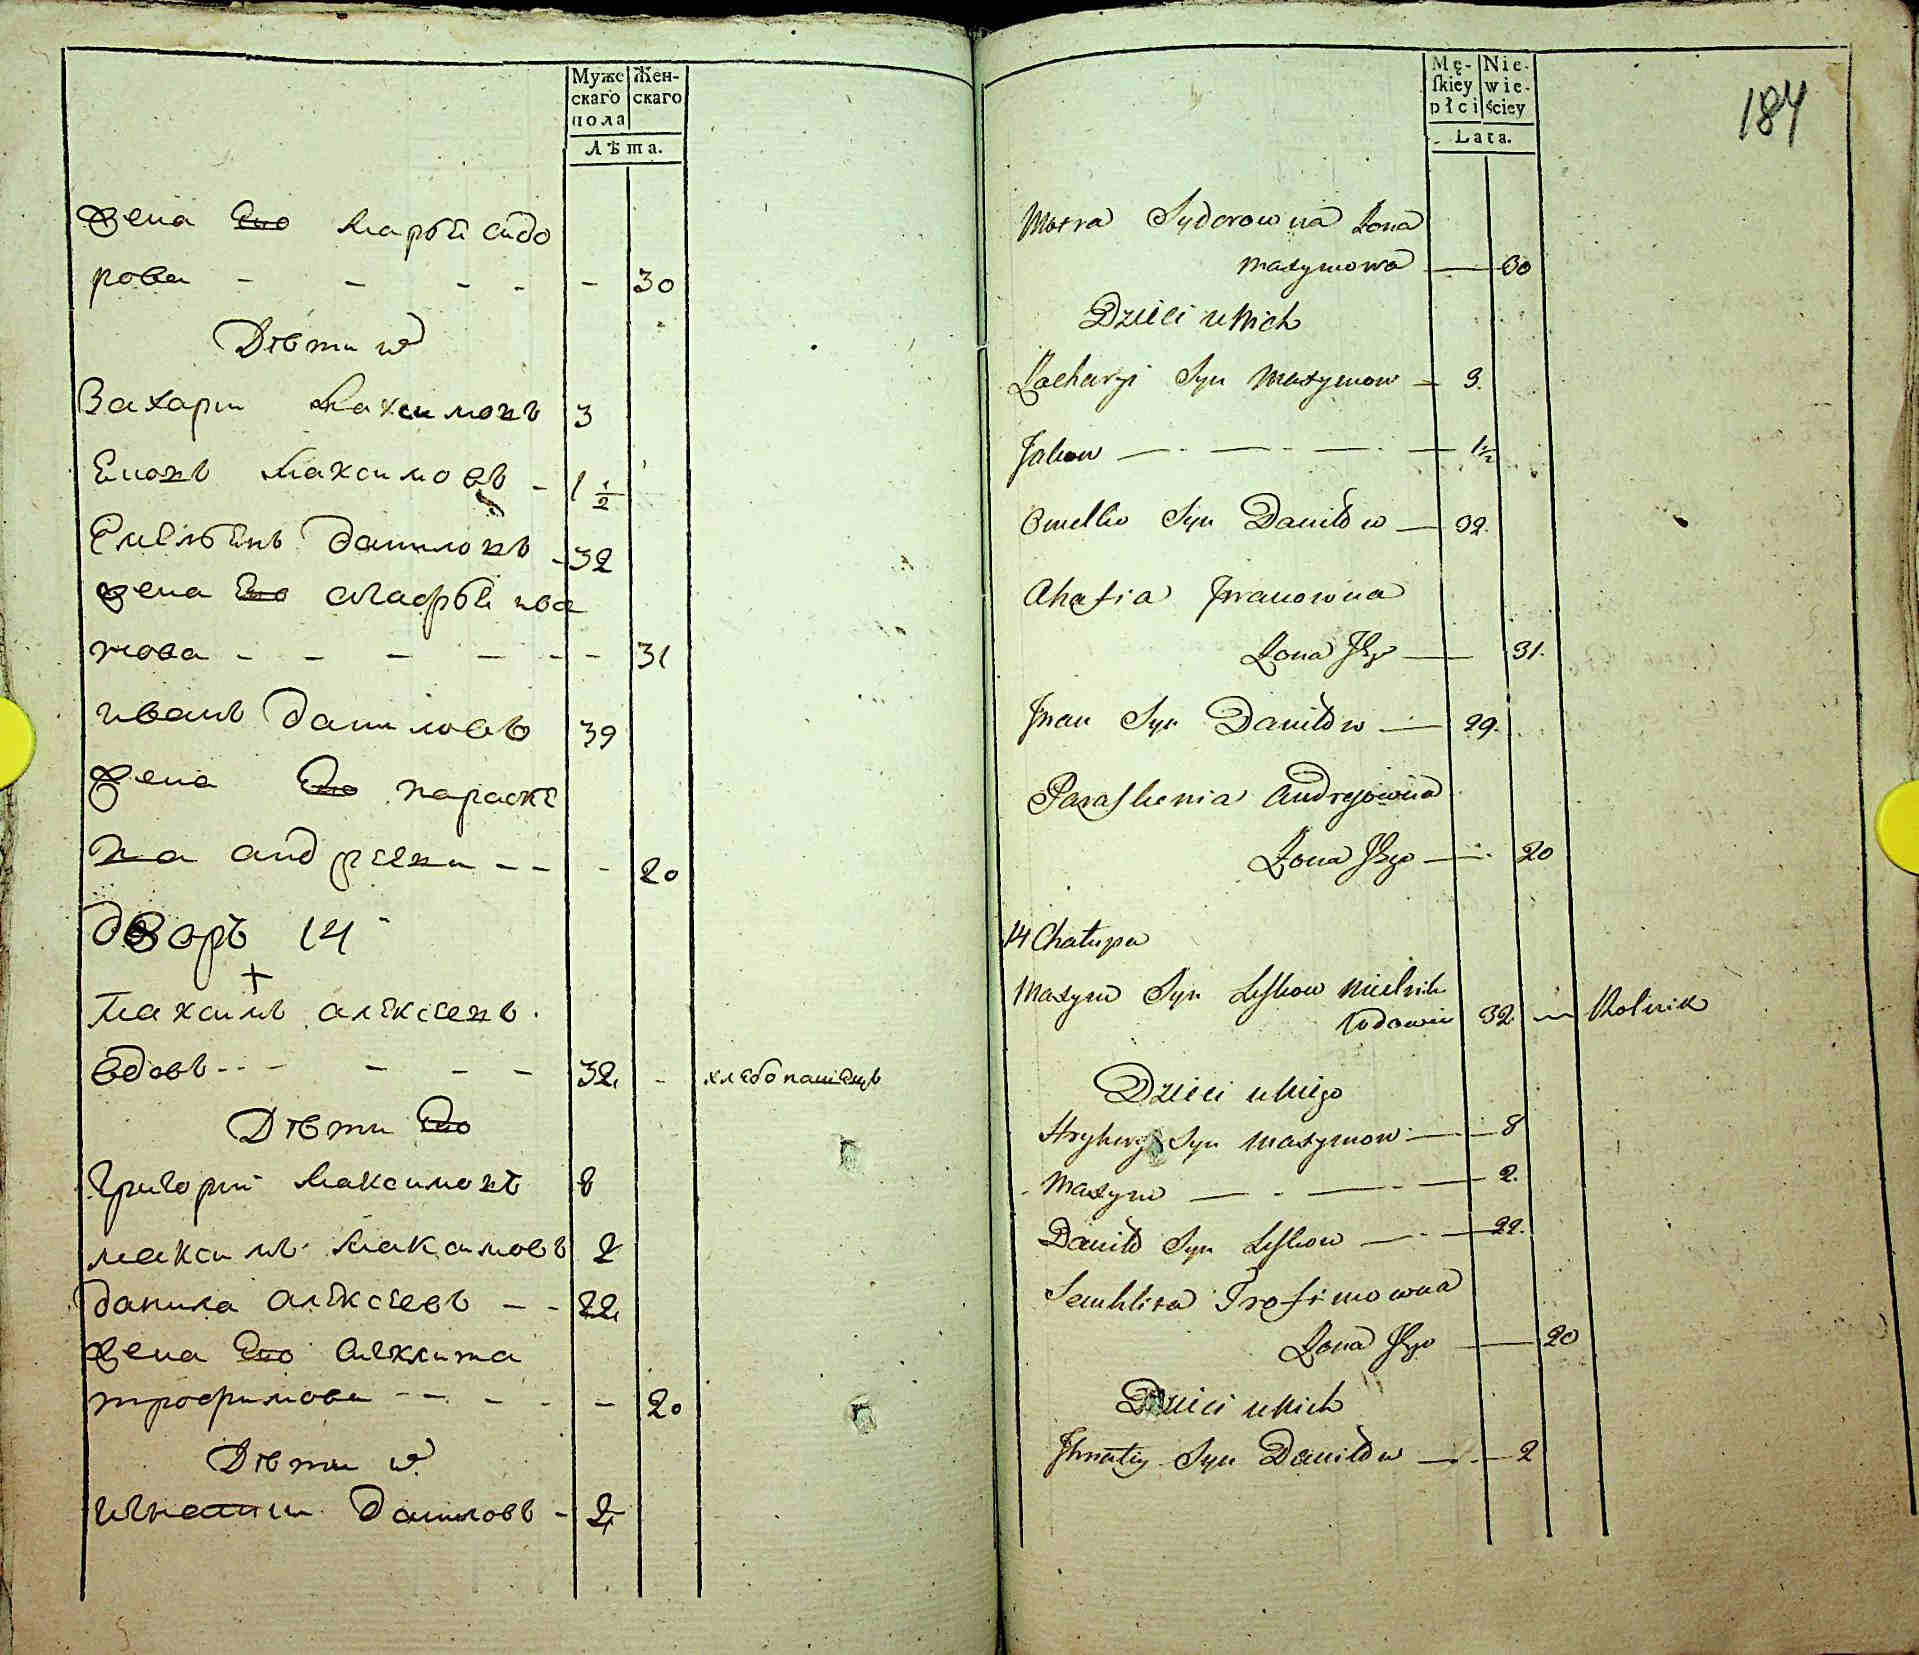 Муже Жен-
скаго скаго
пола
Лѣта.
жена Его Марья Сидо
рова - - - - - 30
Дѣти и
Захари Максимовъ 3
Максимовъ - 1 1/2
Емельянъ Даниловъ - 32
жена Его Агафья Ива
нова - - - - - - 31
Иванъ Даниловъ 39
жена Его Параске
ва Андреева - - - 20
Дворъ 14
+
Максимъ Алексеевъ
вдовъ - - - - - 32 - хлебопашецъ
Дѣти Его
Григорий Максимовъ 8
Максимъ Максимовъ 2
Данила Алексеевъ - - 22
жена Его
Трофимова - - - - - 20
Дѣти и
Игнатии Даниловъ - 2
Mę- Nie-
ſkiey wie-
płci ściey
Lata.
184
Motra Sydorowna Żona
Maxymowa — 30
Dzieci u Nich
Zacharyi Syn Maxymow — 3.
Jakow — . — . — . — 1½
Omelko Syn Daniłow — 32.
Ahafia Jwanowna
Żona Jego — 31.
Jwan Syn Daniłow — 29.
Paraskewia Andrejowna
Żona Jego — 20
14 Chałupa
Maxym Syn Leskow
Wdowiec 32 — Rolnik
Dzieci u Niego
Hryhory Syn Maxymow — 8
Maxym — . — . — 2.
Daniło Syn Leskow — . — 22.
Semklita Trofimowna
Żona Jego — 20
Dzieci u Nich
Jhnatiy Syn Daniłow — . — 2